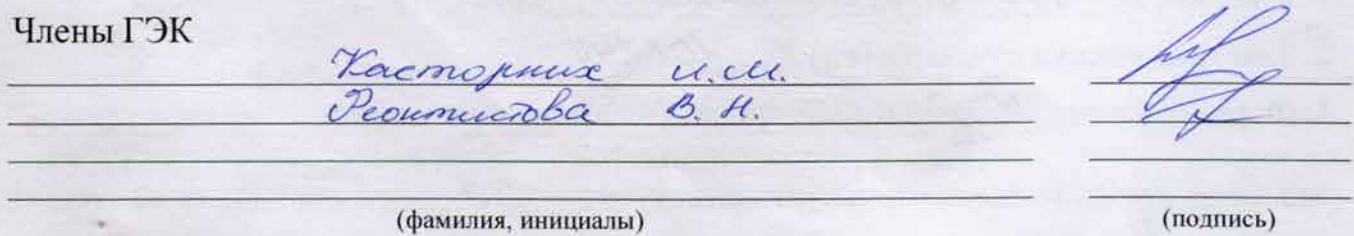 Члены ГЭК
Касторних И.М.
Феоктистова В. Н.
(фамилия, инициалы) (подпись)